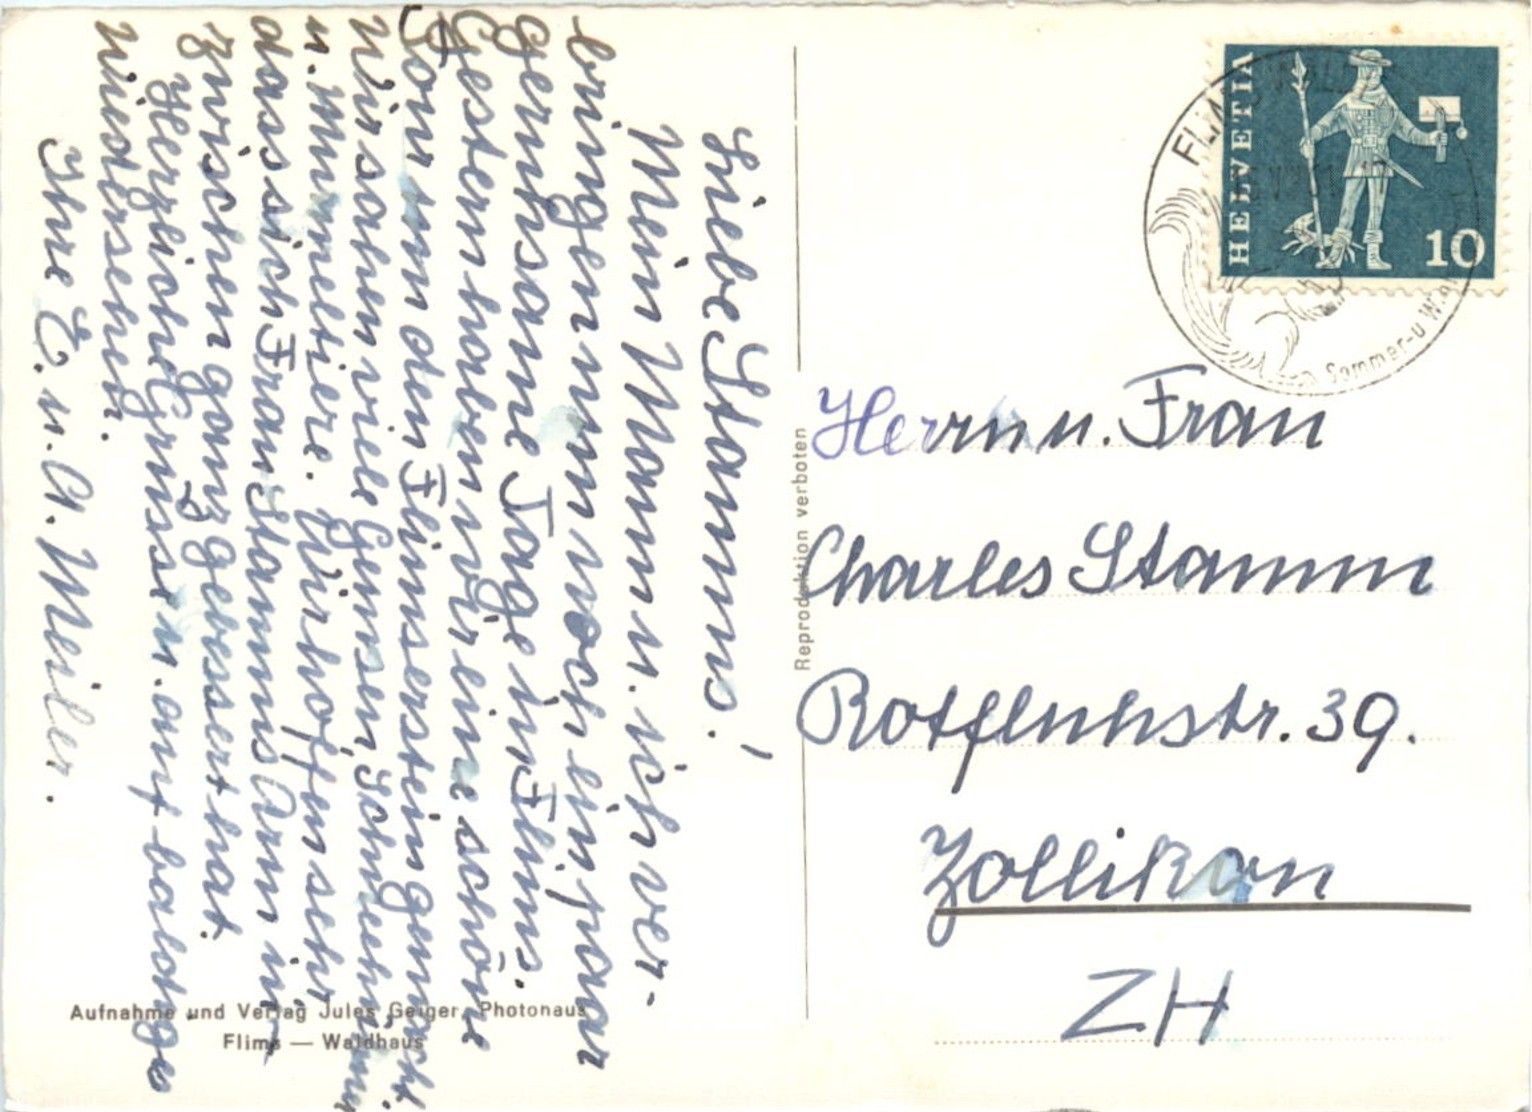 Liebe Stamms!
Mein Mann u. ich ver-
bringen nun noch ein paar
geruhsame Tage in Flims.
Gestern haben wir eine schöne
Tour um den Flimserstein gemacht.
Wir sahen viele Gemsen, Schneehühner
u. Murmeltiere. Wir hoffen sehr,
dass sich Frau Stamms Arm in-
zwischen ganz gebessert hat.
Herzliche Grüsse u. auf baldiges
Wiedersehen.
Ihre E. u. A. Meiler.
Aufnahme und Verlag Jules Geiger, Photohaus
Flims — Waldhaus
Reproduktion verboten
HELVETIA
10
Sommer-u
Herrn u. Frau
Charles Stamm
Rotfluhstr. 39.
Zollikon
ZH